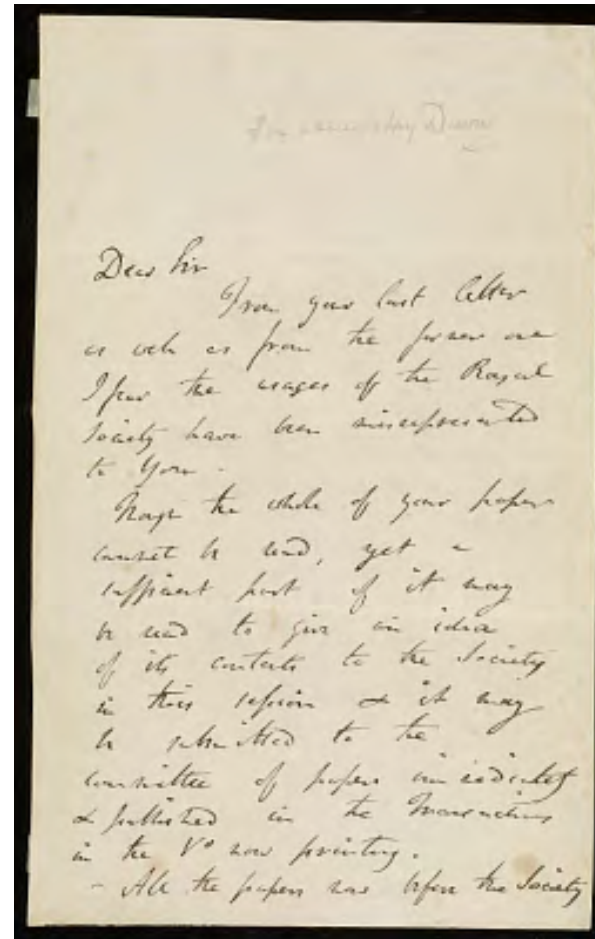 Humphry Davy
Dear Sir
From your last letter
as well as from the former one
I fear the usages of the Royal
Society have been misrepresented
to you.
the whole of your paper
cannot be read, yet a
sufficient part of it may
be read to give an idea
of its contents to the Society
in this session & it may
be submitted to the
committee of papers immediately
& published in the Transactions
in the Vº now printing.
- All the papers now before the Society